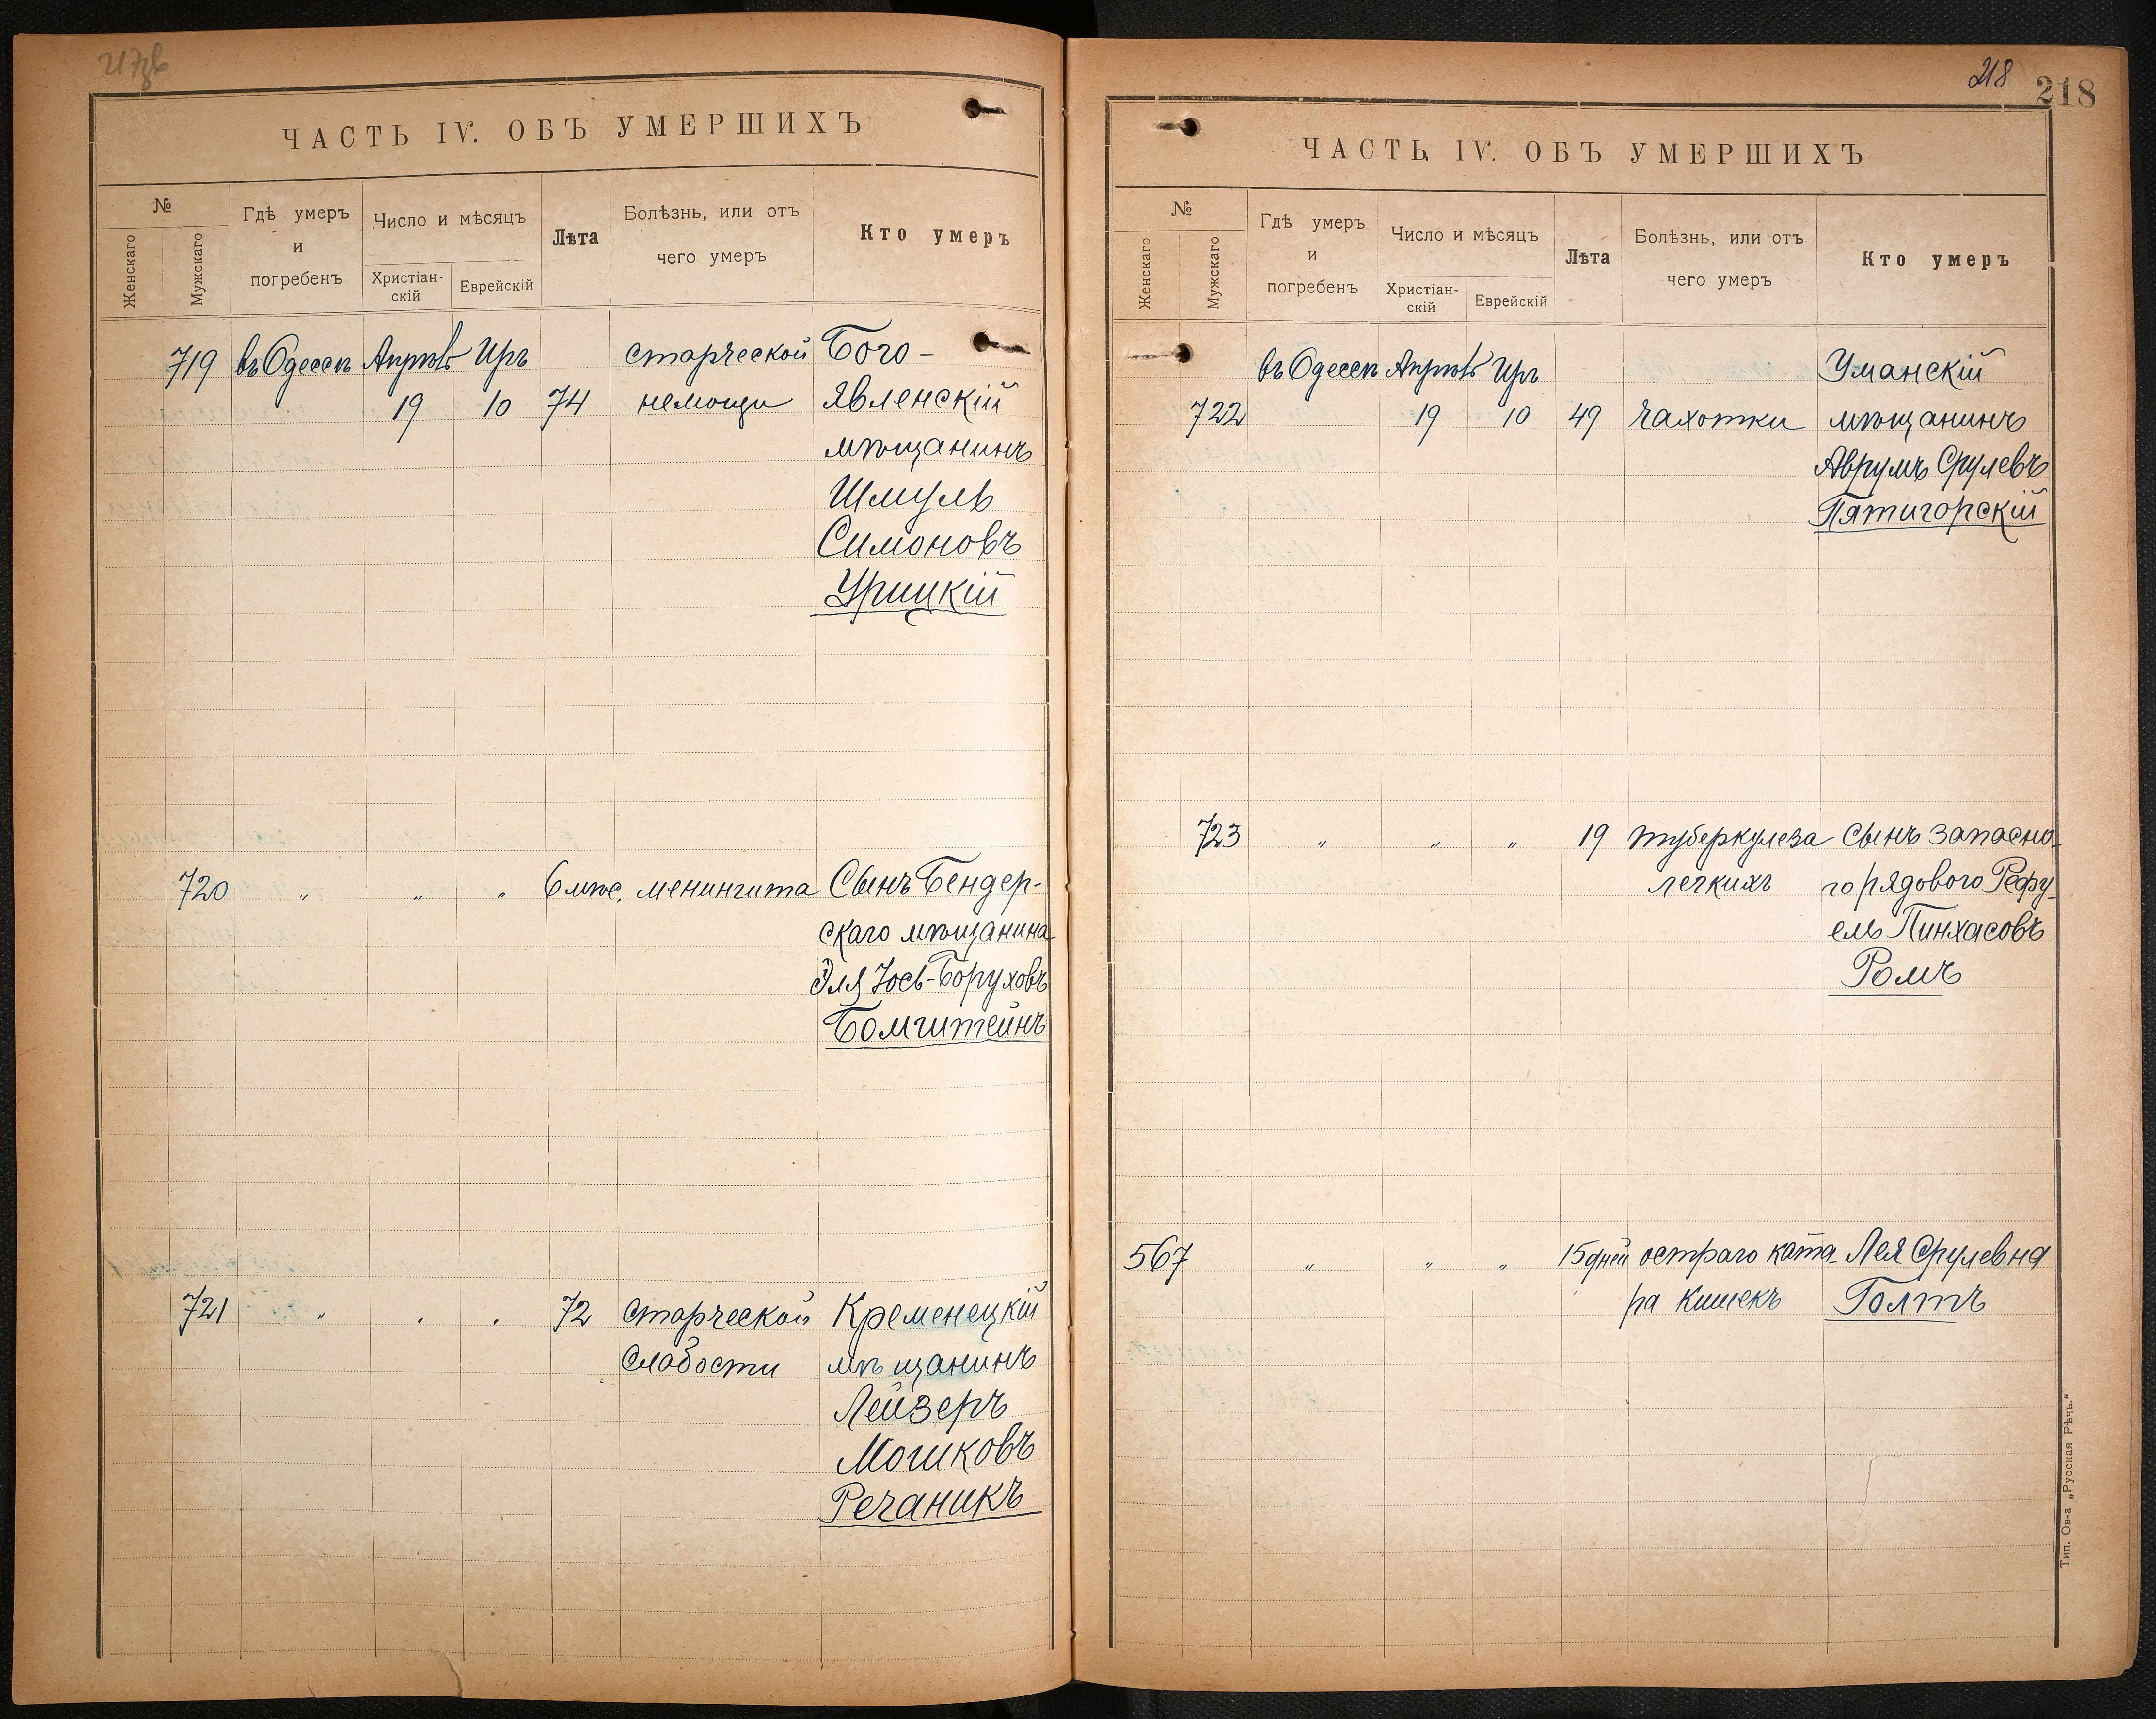 217об
ЧАСТЬ IV. ОБЪ УМЕРШИХЪ
№
Женскаго
Мужскаго
Гдѣ умеръ
и
погребенъ
Число и мѣсяцъ
Христіан-
скій
Еврейскій
Лѣта
Болѣзнь, или отъ
чего умеръ
Кто умеръ
719 въ Одессѣ Апрѣль Иръ старческой Бого-
19 10 74 немощи явленскій
мѣщанинъ
Шмуль
Симоновъ
Урицкій
720 " " " 6 мѣс. менингита Сынъ Бендер-
скаго мѣщанина
Эля Іось-Боруховъ
Бомштейнъ
721 " " " 72 старческой Кременецкій
слабости мѣщанинъ
Лейзеръ
Мошковъ
Речаникъ
218 218
ЧАСТЬ IV. ОБЪ УМЕРШИХЪ
№
Женскаго
Мужскаго
Гдѣ умеръ
и
погребенъ
Число и мѣсяцъ
Христіан-
скій
Еврейскій
Лѣта
Болѣзнь, или отъ
чего умеръ
Кто умеръ
въ Одессѣ Апрѣль Иръ Уманскій
722 19 10 49 чахотки мѣщанинъ
Аврумъ Срулевъ
Пятигорскій
723 " " " 19 туберкулеза Сынъ запасно-
легкихъ го рядового Рефу-
ель Пинхасовъ
Ромъ
567 " " " 15 дней остраго ката- Лея Срулевна
ра кишекъ Голтъ
Тип. Ов-а „Русская Рѣчь."